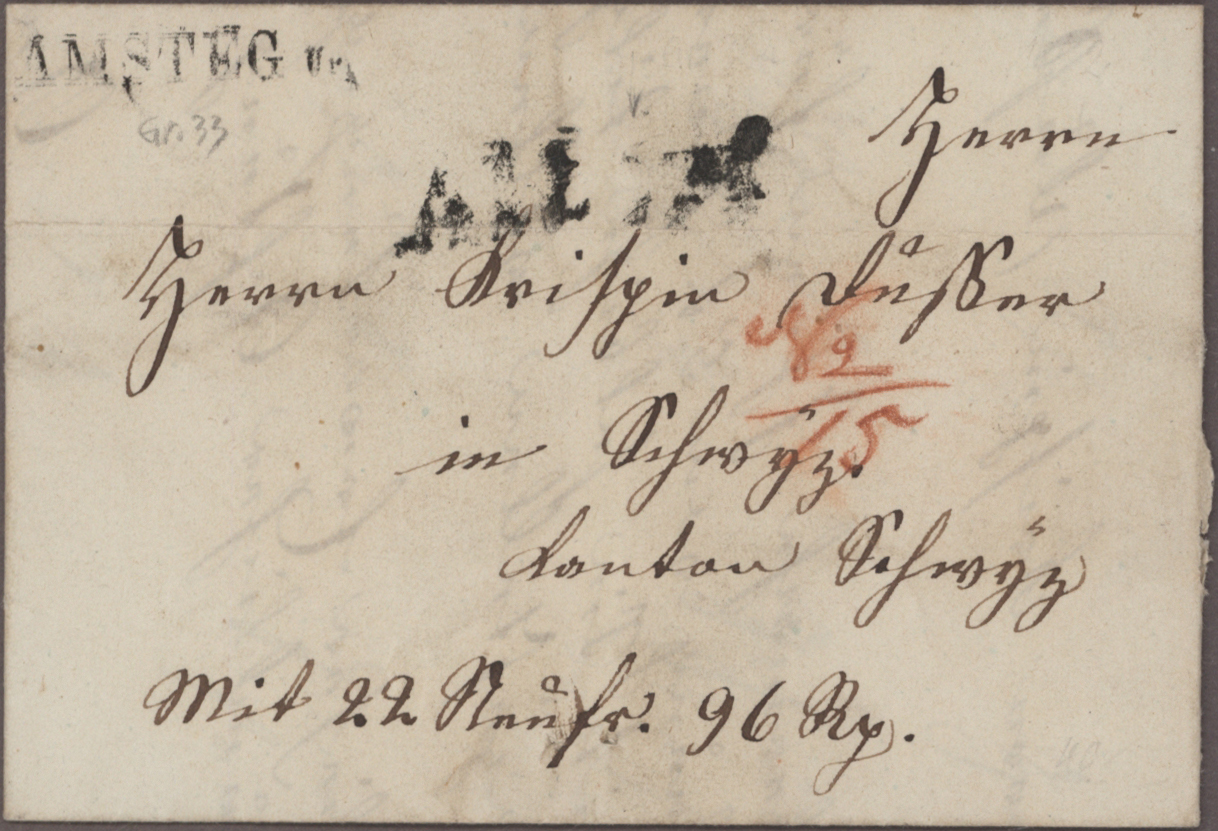 AMSTEG Uri
Gr. 33
Herrn
Herrn Krispin Düsser
in Schwÿz.
Kanton Schwÿz
Mit 22 Neufr. 96 Rp.